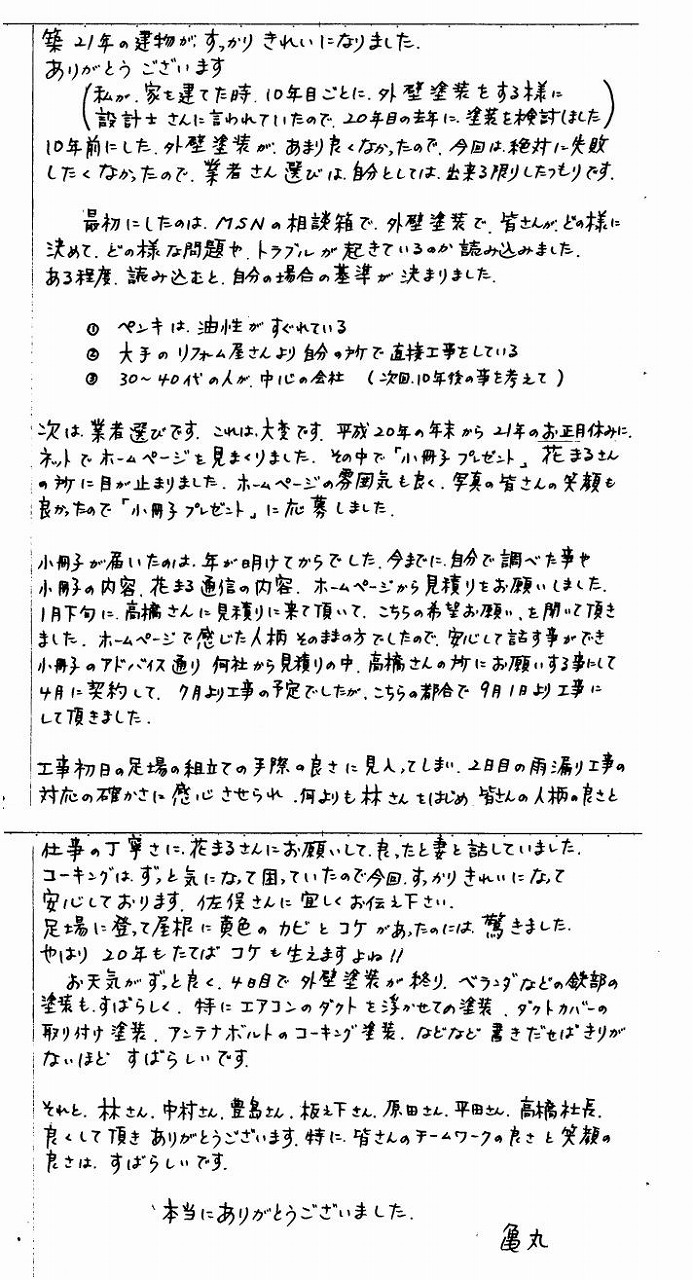 築21年の建物が、すっかりきれいになりました。
ありがとうございます
(私が、家を建てた時、10年目ごとに、外壁塗装をする様に
設計士さんに言われていたので、20年目の去年に、塗装を検討しました)
10年前にした、外壁塗装が、あまり良くなかったので、今回は、絶対に失敗
したくなかったので、業者さん選びは、自分としては、出来る限りしたつもりです。
最初にしたのは、MSNの相談箱で、外壁塗装で、皆さんが、どの様に
決めて、どの様な問題や、トラブルが起きているのか読み込みました。
ある程度、読み込むと、自分の場合の基準が決まりました。
① ペンキは、油性がすぐれている
② 大手のリフォーム屋さんより自分の所で直接工事をしている
③ 30~40代の人が、中心の会社 (次回、10年後の事を考えて)
次は、業者選びです。これは、大変です。平成20年の年末から21年のお正月休みに、
ネットでホームページを見まくりました。その中で「小冊子プレゼント」花まるさん
の所に目が止まりました。ホームページの雰囲気も良く、写真の皆さんの笑顔も
良かったので「小冊子プレゼント」に応募しました。
小冊子が届いたのは、年が明けてからでした。今までに、自分で調べた事や
小冊子の内容、花まる通信の内容、ホームページから見積りをお願いしました。
1月下旬に、高橋さんに見積りに来て頂いて、こちらの希望お願い、を聞いて頂き
ました。ホームページで感じた人柄そのままの方でしたので、安心して話す事ができ
小冊子のアドバイス通り 何社から見積りの中、高橋さんの所にお願いする事にして
4月に契約して、7月より工事の予定でしたが、こちらの都合で9月1日より工事に
して頂きました。
工事初日の足場の組立ての手際の良さに見入ってしまい、2日目の雨漏り工事の
対応の確かさに感心させられ、何よりも林さんをはじめ皆さんの人柄の良さと
仕事の丁寧さに、花まるさんにお願いして、良ったと妻と話していました。
コーキングは、ずっと気になって困っていたので今回、すっかりきれいになって
安心しております。佐俣さんに宜しくお伝え下さい。
足場に登って屋根に黄色のカビとコケがあったのには、驚きました。
やはり20年もたてばコケも生えますよね!!
お天気がずっと良く、4日目で外壁塗装が終り、ベランダなどの鉄部の
塗装も、すばらしく、特にエアコンのダクトを浮かせての塗装、ダクトカバーの
取り付け塗装、アンテナボルトのコーキング塗装、などなど書きだせばきりが
ないほどすばらしいです。
それと、林さん、中村さん、豊島さん、板之下さん、原田さん、平田さん、高橋社長、
良くして頂きありがとうございます。特に、皆さんのチームワークの良さと笑顔の
良さは、すばらしいです。
本当にありがとうございました。
亀丸